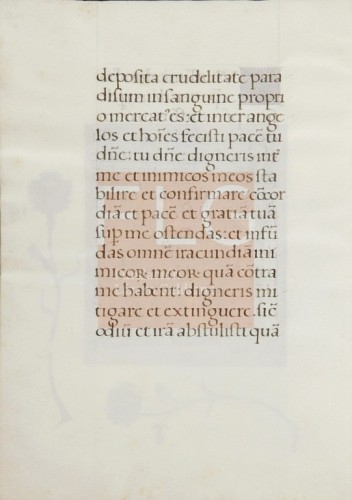 deposita crudelitate para
disum in sanguine propri
o mercat᷒ es: et inter ange
los et hoı̃es fecisti pacē tu
dñe: tu dñe digneris int̃
me et inimicos meos sta
bilire et confirmare cōcor
diā et pacē et gratiā tuā
sup me ostendas: et infū
das omnē iracundiā ini
micor meor quā cōtra
me habent: digneris mi
tigare et extinguere. sic̃
odiū et irā abstulisti quā
TLC